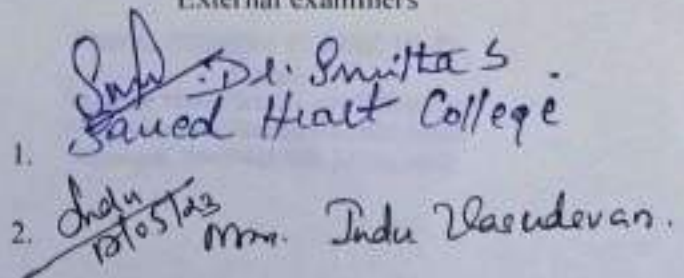 External examiners
Dr. Smitha S.
1. Sacred Heart College
2. Indu 12/05/23 Mrs. Indu Vasudevan.